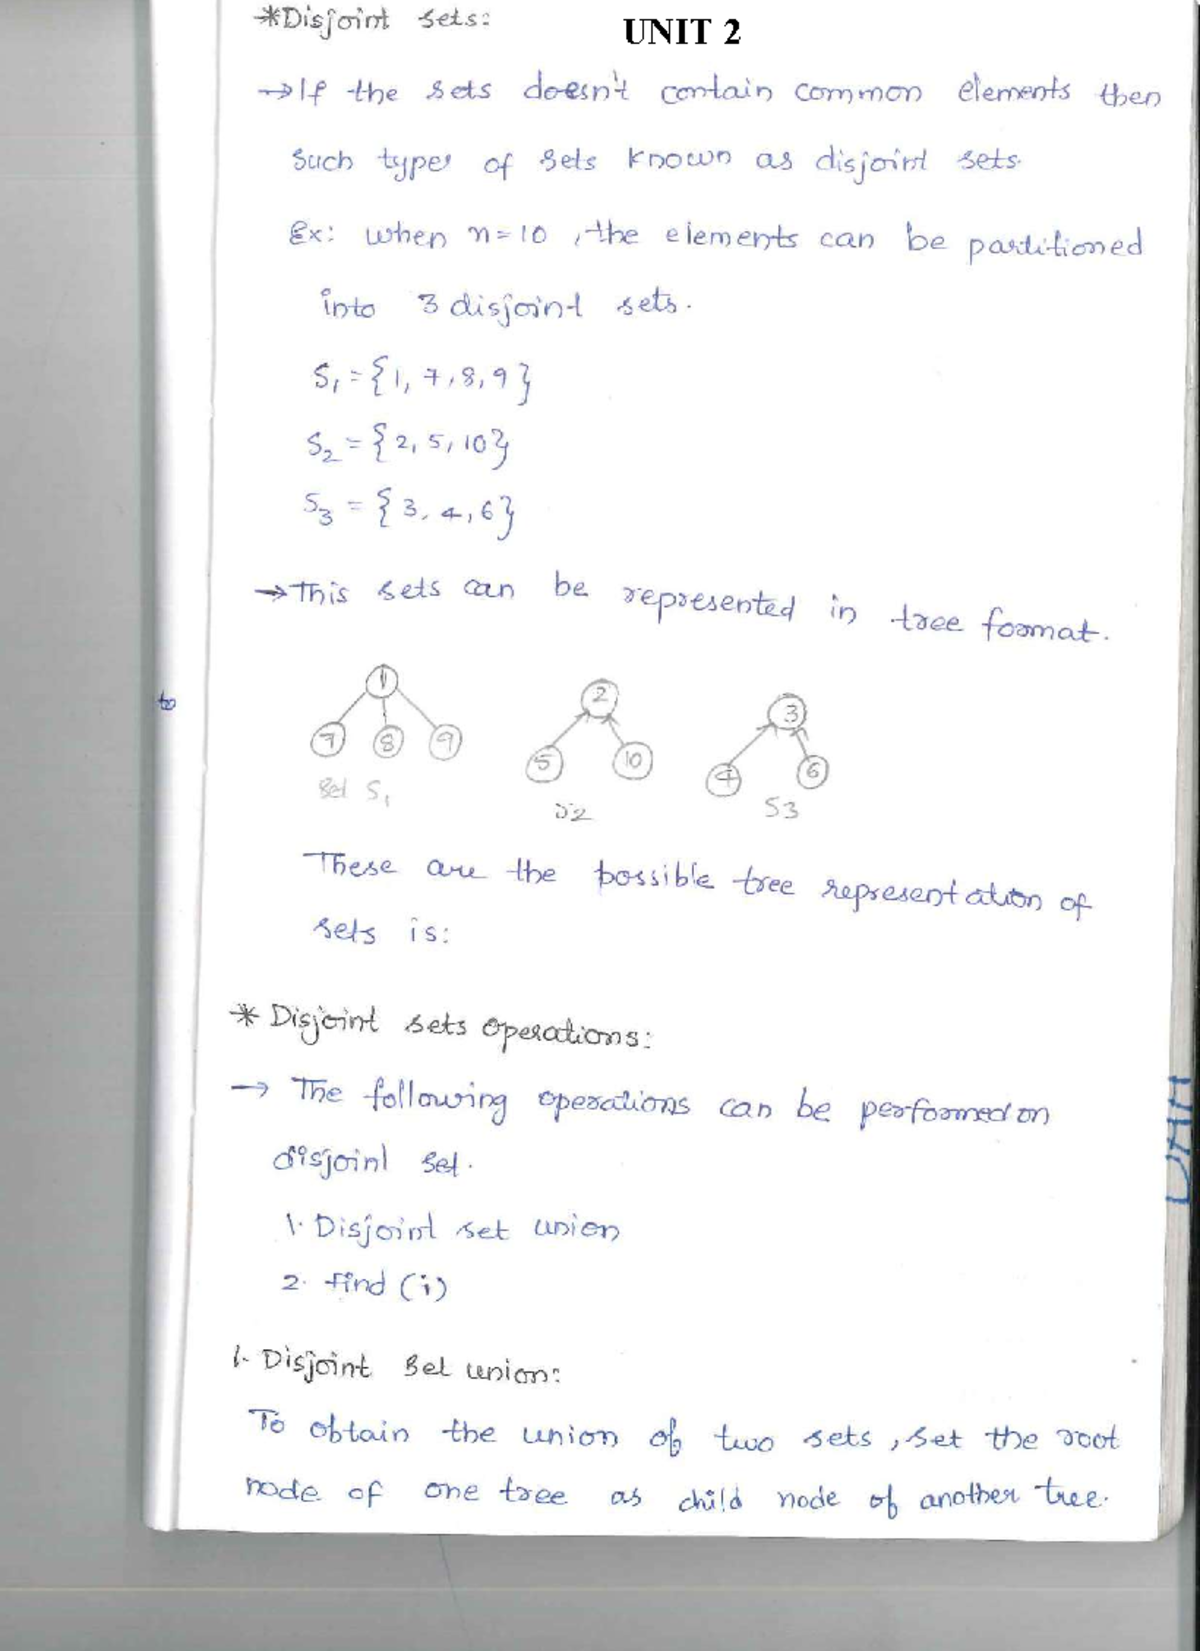 *Disjoint sets:
UNIT 2
→If the sets doesn't contain common elements then
such types of sets known as disjoint sets.
Ex: when n=10, the elements can be partitioned
into 3 disjoint sets.
S1 = {1, 7, 8, 9}
S2 = {2, 5, 10}
S3 = {3, 4, 6}
→This sets can be represented in tree format.
to
1 2 3
7 8 9 5 10 4 6
Set S1 S2 S3
These are the possible tree representation of
sets is:
* Disjoint sets operations:
→ The following operations can be performed on
disjoint set.
1. Disjoint set union
2. find (i)
1. Disjoint set union:
To obtain the union of two sets, set the root
node of one tree as child node of another tree.